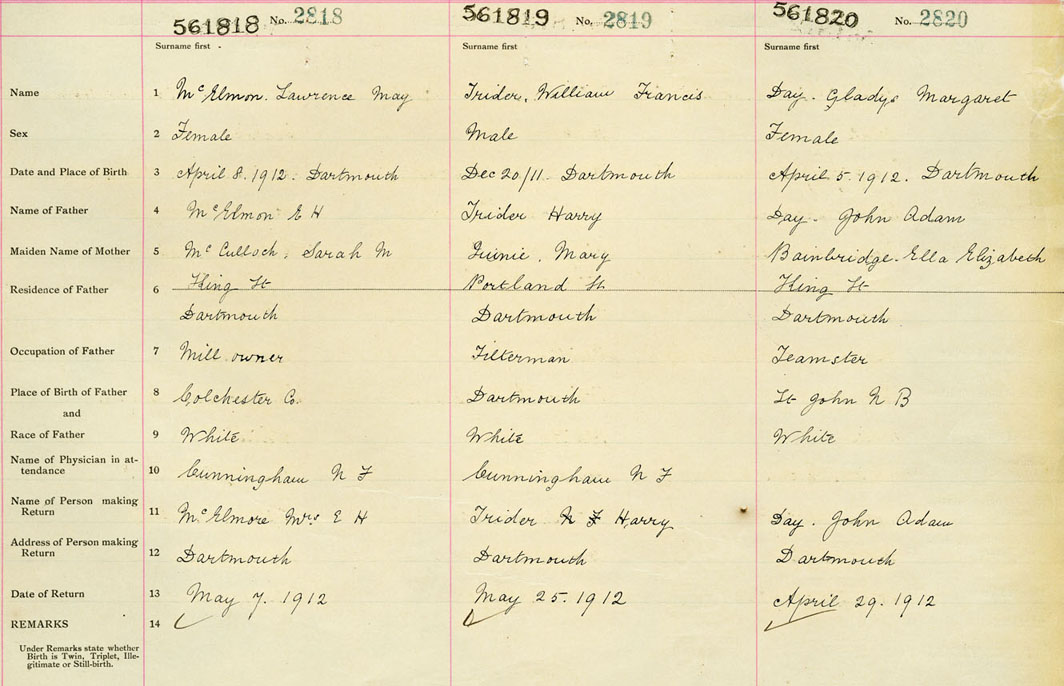 561818 No. 2818 561819 No. 2819 561820 No. 2820
Surname first Surname first Surname first
Name 1 McElmon. Lawrence May Trider, William Francis Day. Gladys Margaret
Sex 2 Female Male Female
Date and Place of Birth 3 April 8. 1912. Dartmouth Dec 20/11. Dartmouth April 5. 1912. Dartmouth
Name of Father 4 McElmon E H Trider Harry Day. John Adam
Maiden Name of Mother 5 McCulloch, Sarah M Mary Bainbridge. Ella Elizabeth
Residence of Father 6 King St Portland St King St
Dartmouth Dartmouth Dartmouth
Occupation of Father 7 Mill owner Filterman Teamster
Place of Birth of Father 8 Colchester Co. Dartmouth St John N B
and
Race of Father 9 White White White
Name of Physician in at-
tendance 10 Cunningham N F Cunningham N F
Name of Person making
Return 11 McElmore Mrs E H Trider N F Harry Day. John Adam
Address of Person making
Return 12 Dartmouth Dartmouth Dartmouth
Date of Return 13 May 7. 1912 May 25. 1912 April 29. 1912
REMARKS 14
Under Remarks state whether
Birth is Twin, Triplet, Ille-
gitimate or Still-birth.